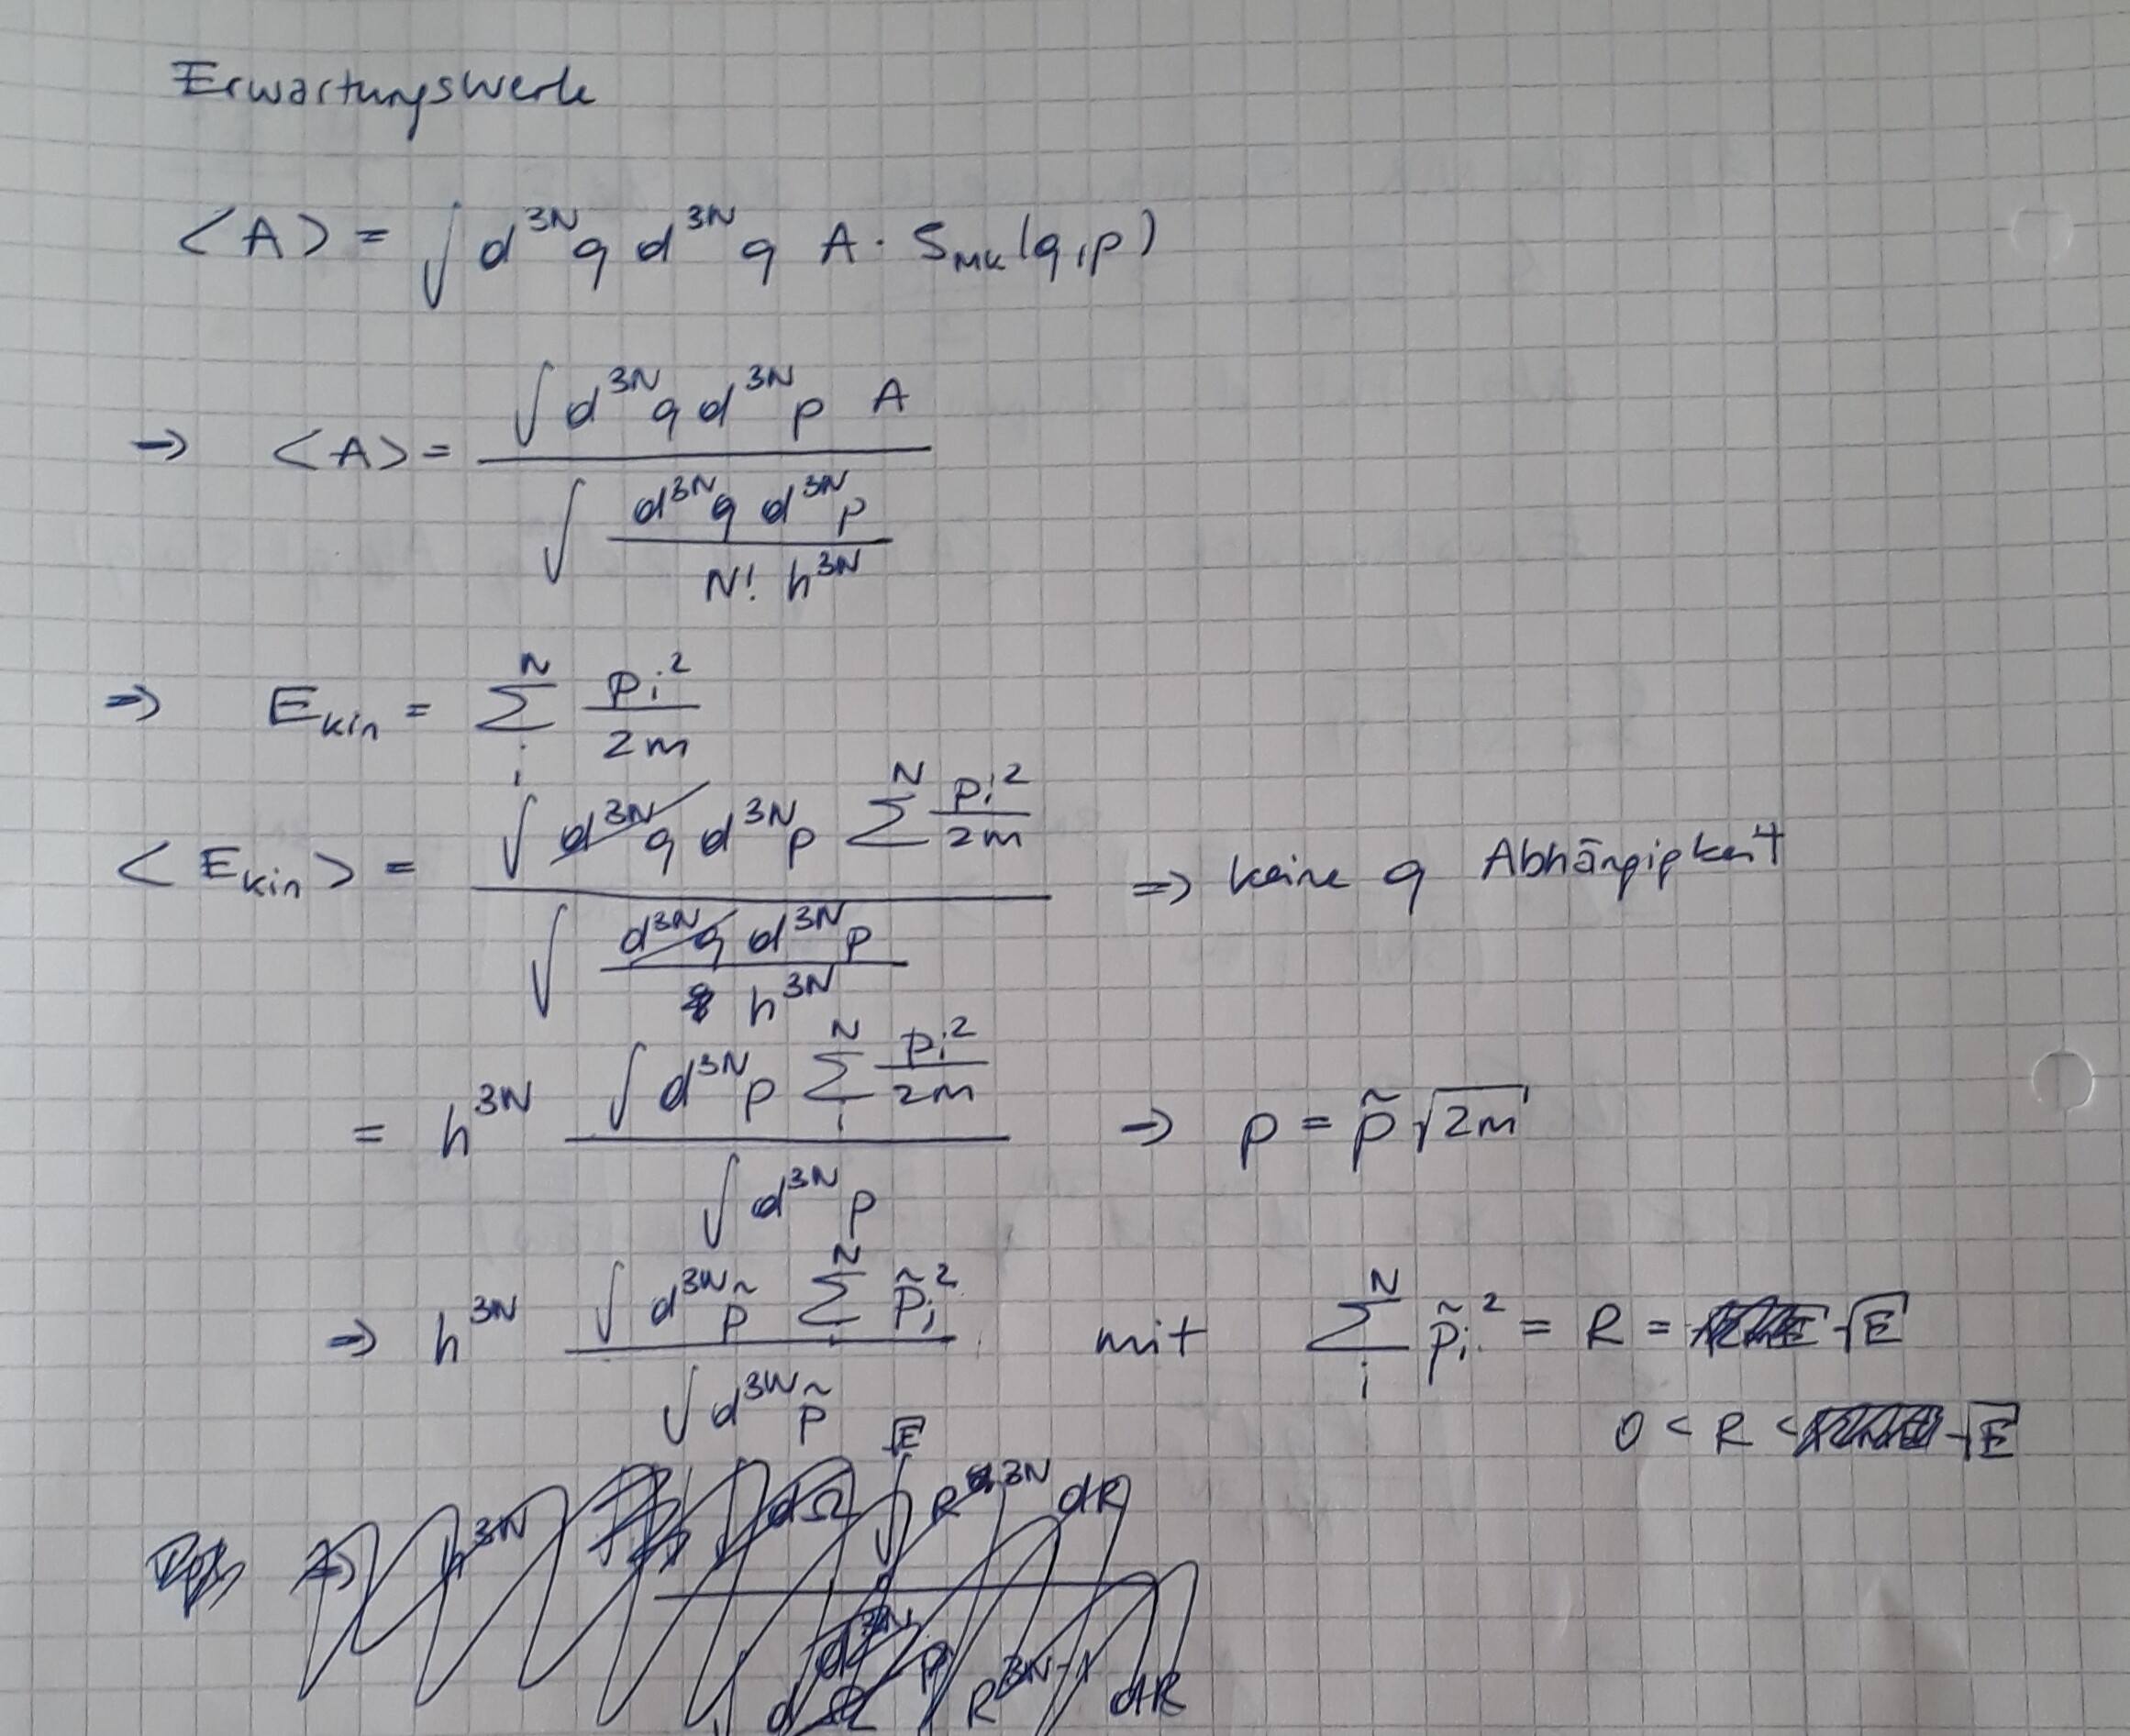 Erwartungswerte
<A> = ∫ d^3N q d^3N q A · S_MK (q,p)
⇒ <A> = ∫ d^3N q d^3N p A / ∫ (d^3N q d^3N p / N! h^3N)
⇒ E_kin = Σ_i^N p_i^2 / 2m
<E_kin> = ∫ d^3N q d^3N p Σ^N p_i^2 / 2m / ∫ (d^3N q d^3N p / h^3N) ⇒ keine q Abhängigkeit
= h^3N ∫ d^3N p Σ_i^N p_i^2 / 2m / ∫ d^3N p → p = p̃ √2m
⇒ h^3N ∫ d^3N p̃ Σ_i^N p̃_i^2 / ∫ d^3N p̃ mit Σ_i^N p̃_i^2 = R = √E
0 < R < √E
⇒ h^3N dΩ ∫ √E R^3N dR / dΩ R^3N-1 dR